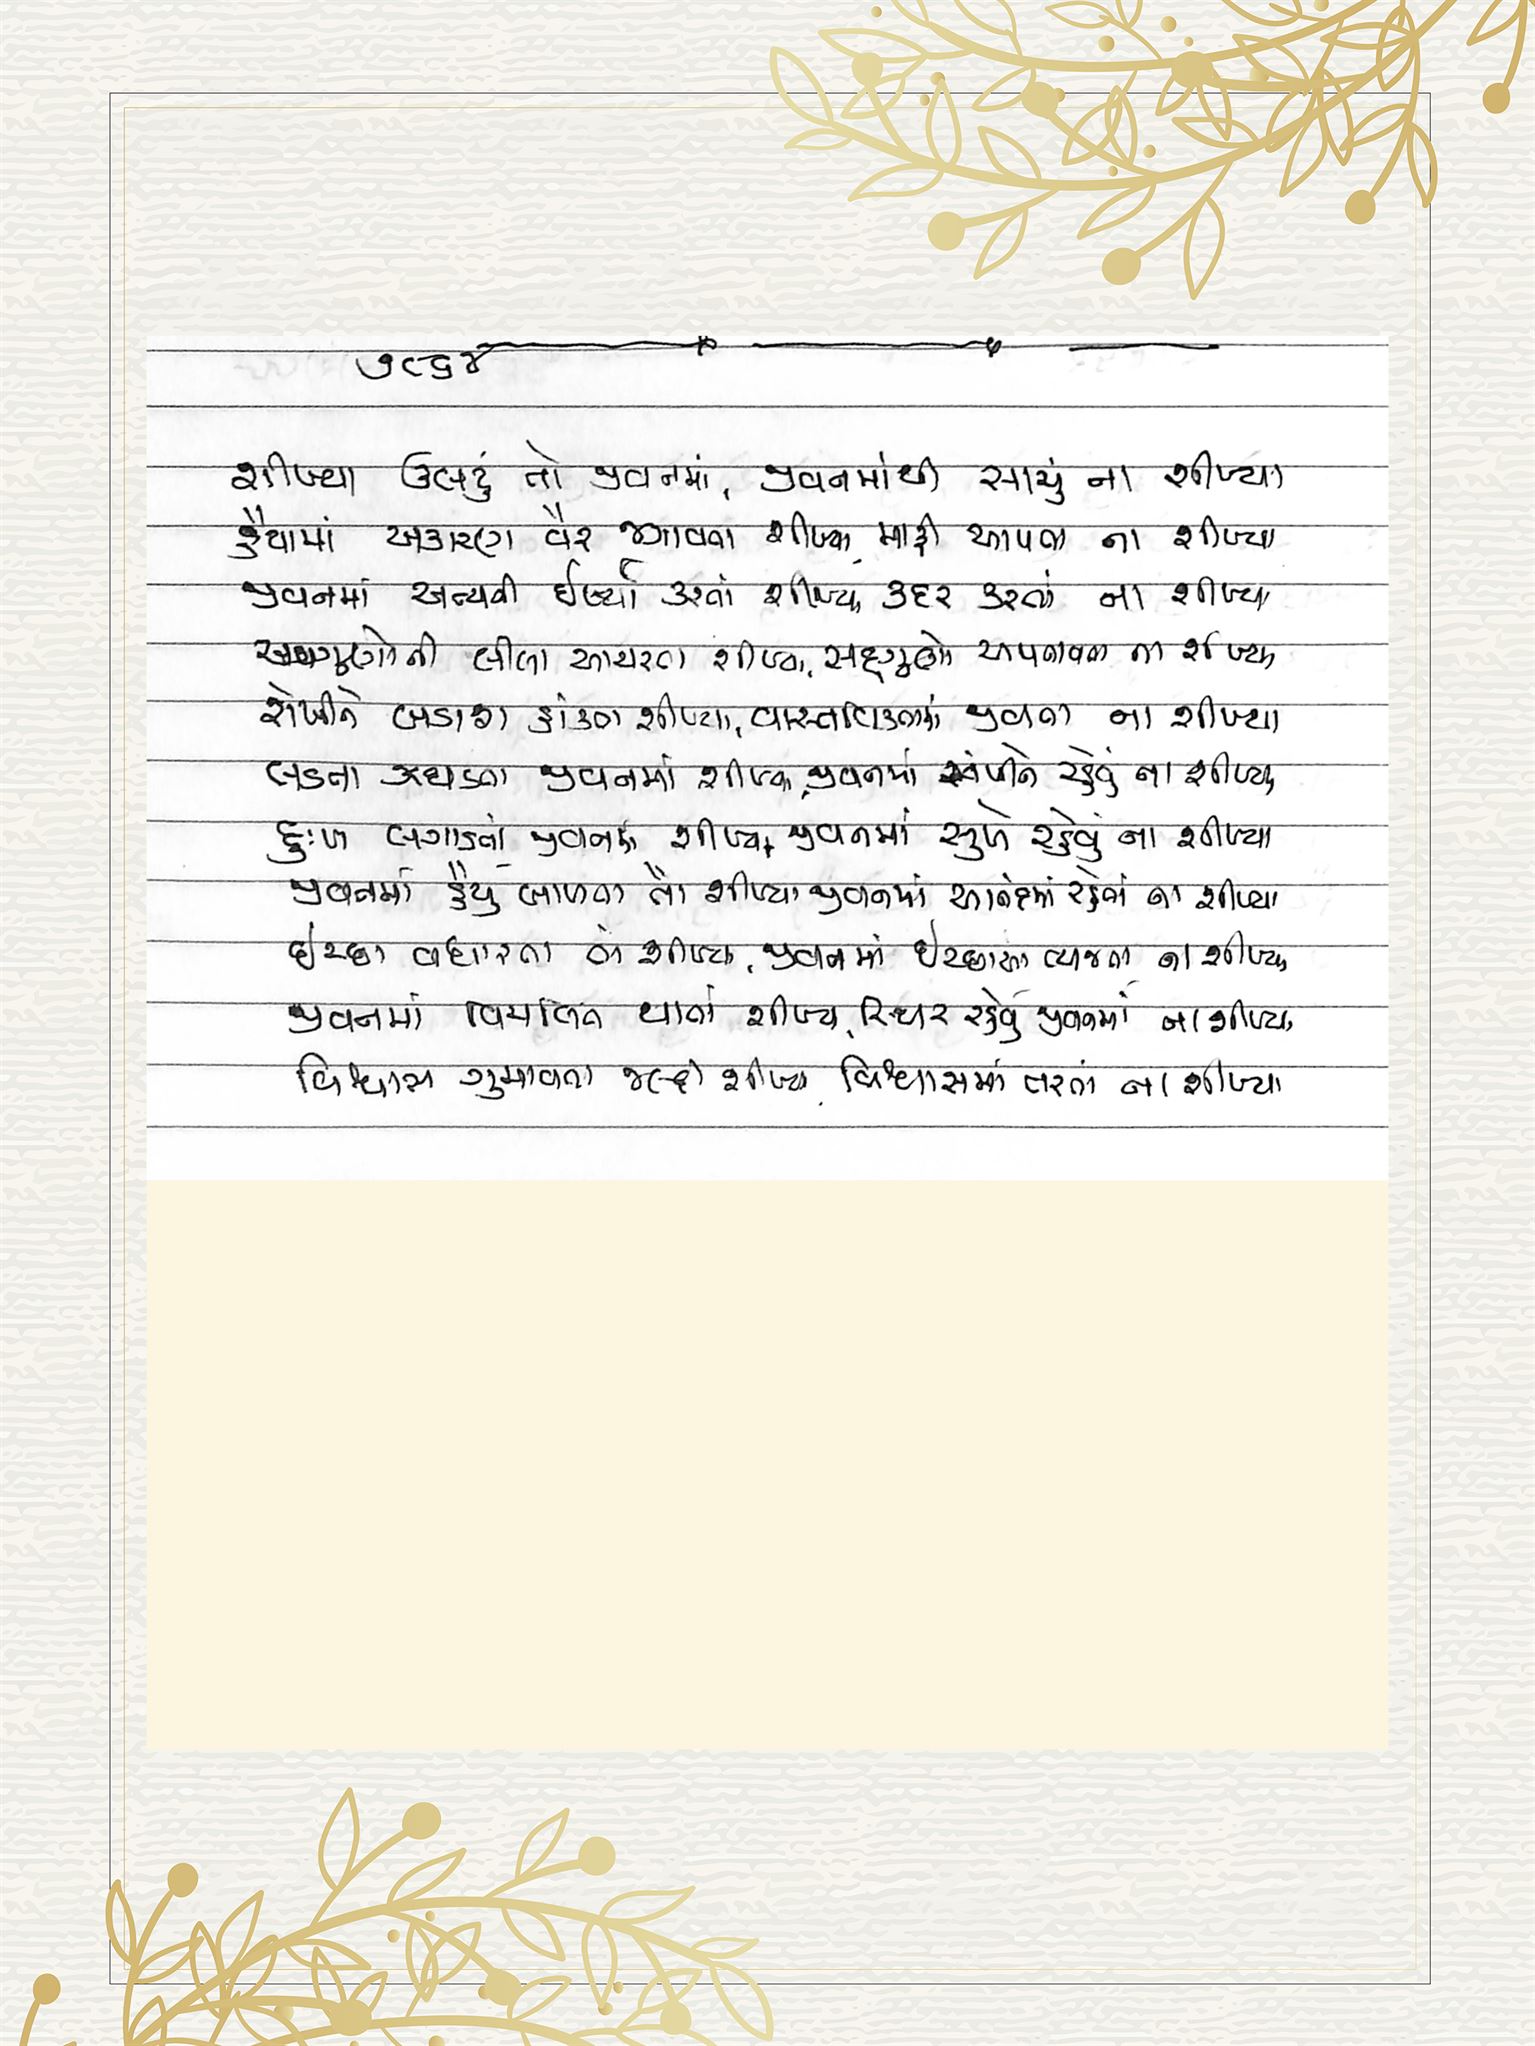 ૭૯૬૪
શીખ્યા ઉલટું તો જીવનમાં, જીવનમાંથી સાચું ના શીખ્યા
હૈયામાં અકારણ વૈર જગાવવા શીખ્યા, માફી આપવા ના શીખ્યા
જીવનમાં અન્યની ઈર્ષ્યા કરતાં શીખ્યા, કદર કરતાં ના શીખ્યા
અવગુણોની લીલા આચરતા શીખ્યા, સદ્ગુણો અપનાવવા ના શીખ્યા
શેખીને બડાશ હાંકવા શીખ્યા, વાસ્તવિક્તામાં જીવવા ના શીખ્યા
લડતા ઝઘડતા જીવનમાં શીખ્યા, જીવનમાં સંપીને રહેવું ના શીખ્યા
દુઃખ લગાડતાં જીવનમાં શીખ્યા, જીવનમાં સુખે રહેવું ના શીખ્યા
જીવનમાં હૈયું બાળવા તો શીખ્યા જીવનમાં આનંદમાં રહેવાં ના શીખ્યા
ઇચ્છા વધારતા તો શીખ્યા, જીવનમાં ઇચ્છાઓ ત્યજતા ના શીખ્યા
જીવનમાં વિચલિત થાતાં શીખ્યા, સ્થિર રહેવું જીવનમાં ના શીખ્યા
વિશ્વાસ ગુમાવતા જલ્દી શીખ્યા, વિશ્વાસમાં તરતાં ના શીખ્યા